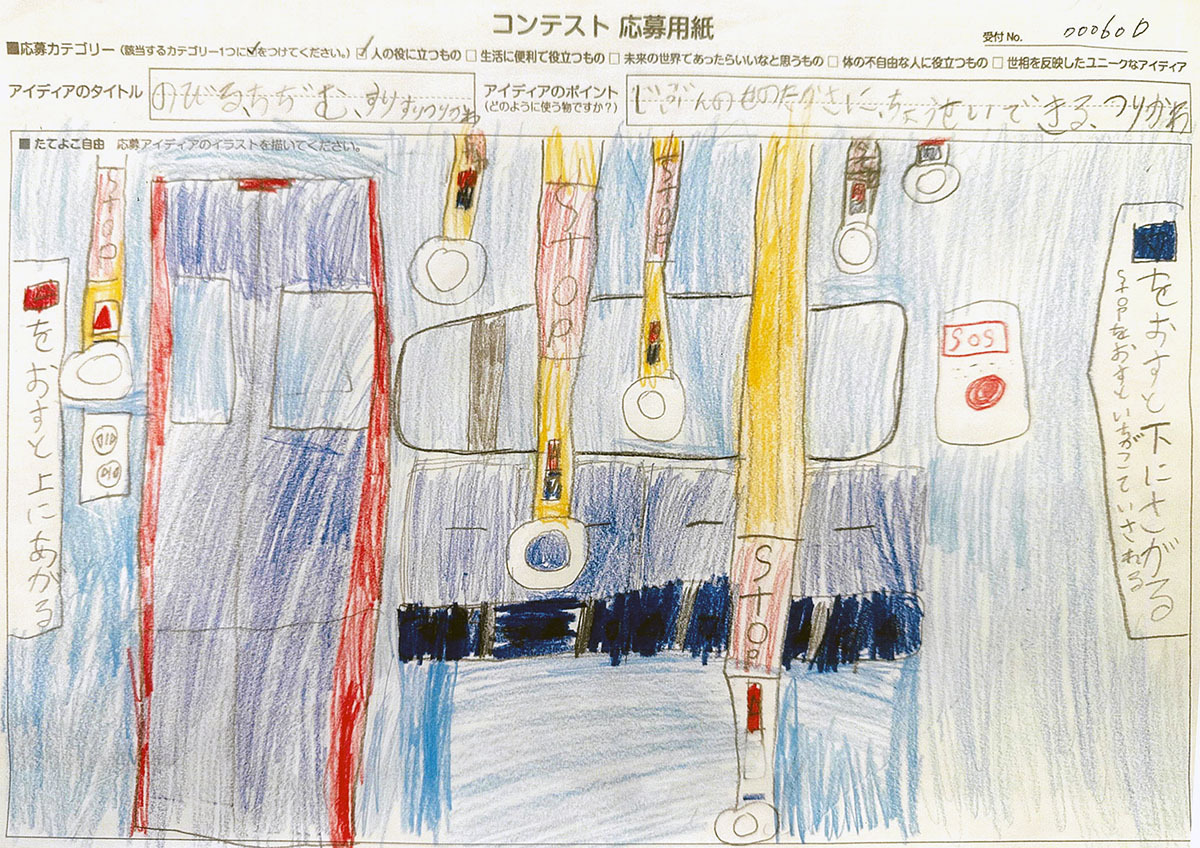 コンテスト 応募用紙
受付No. 00060D
■応募カテゴリー（該当するカテゴリー1つに✓をつけてください。） ☑人の役に立つもの □生活に便利で役立つもの □未来の世界であったらいいなと思うもの □体の不自由な人に役立つもの □世相を反映したユニークなアイディア
アイディアのタイトル のびる、ちぢむ、すりすりつりかわ
アイディアのポイント
（どのように使う物ですか？）
じぶんのせのたかさに、ちょうせいできる、つりかわ
■ たてよこ自由　応募アイディアのイラストを描いてください。
STOP
STOP
STOP
STOP
をおすと上にあがる
SOS
をおすと下にさがる
STOPをおすといちがこていされる